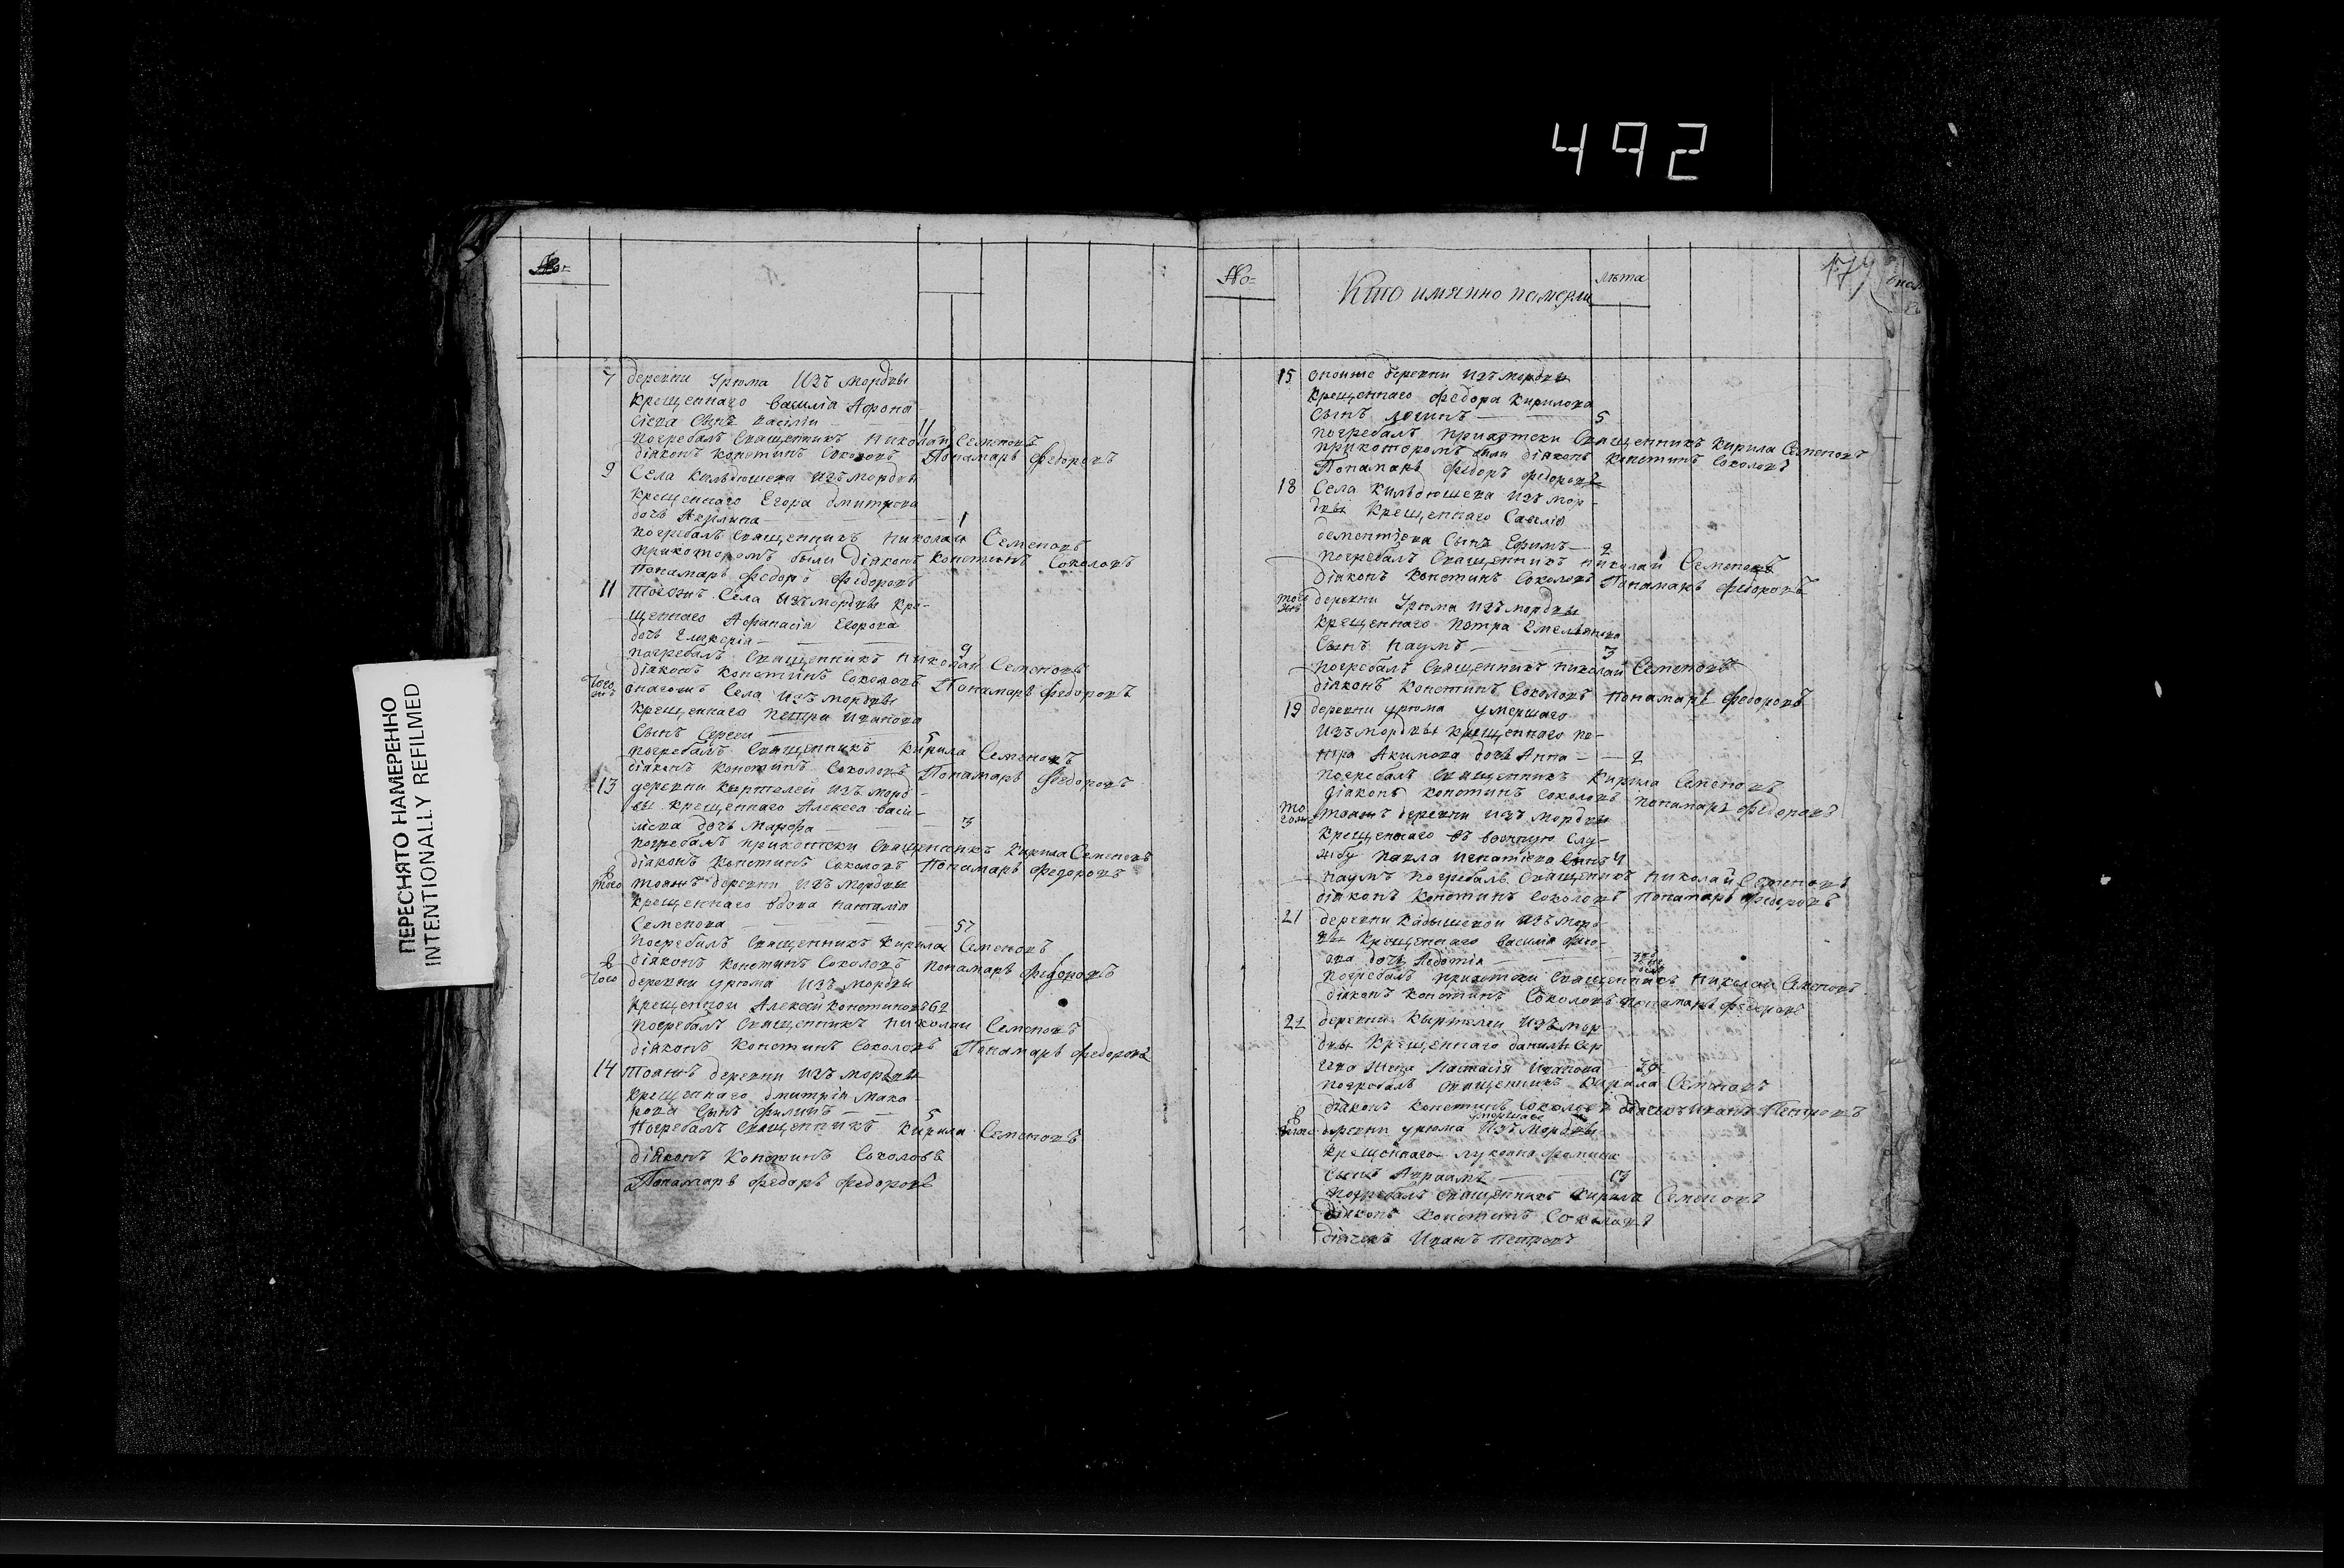 492
ПЕРЕСНЯТО НАМЕРЕННО
INTENTIONALLY REFILMED
№
7 деревни Урюма Изъ мордвы
крещеннаго василіа Афона
сіева Сынъ василіи 11
погребалъ Священникъ николай Семеновъ
діаконъ констинъ Соколовъ Понамарь федоровъ
9 Села кильдюшева изъ мордвы
крещеннаго Егора дмитриева
дочь Акулина 1
погребалъ священникъ николай Семеновъ
прикоторомъ были діаконъ констинъ Соколовъ
понамарь федоръ федоровъ
11 Тогожъ Села изъ мордвы кре-
щеннаго Афанасіа Егорова
дочь Гликеріа 9
погребалъ Священникъ николай Семеновъ
діаконъ констинъ Соколовъ Понамарь федоровъ
того онагожъ Села изъ мордвы
крещеннаго петра иванова
Сынъ Сергеи 5
погребалъ Священникъ кирила Семеновъ
діаконъ констинъ Соколовъ Понамарь федоровъ
13 деревни кыртелеи изъ морд-
вы крещеннаго Алексеа васи-
ліева дочь Марфа 3
погребалъ Священникъ кирила Семеновъ
діаконъ констинъ Соколовъ понамарь федоровъ
того тояжъ деревни изъ мордвы
крещеннаго вдова наталіа
Семенова 57
погребалъ Священникъ кирила Семеновъ
діаконъ констинъ Соколовъ понамарь федоровъ
того деревни урюма изъ мордвы
крещеннои Алексеи констиновъ 62
погребалъ Священникъ николаи Семеновъ
діаконъ констинъ Соколовъ Понамарь федоровъ
14 тояжъ деревни изъ мордвы
крещеннаго дмитріа мака-
рова Сынъ филипъ 5
погребалъ Священникъ кирила Семеновъ
діаконъ констинъ Соколовъ
Понамарь федоръ федоровъ
№ Кто имянно померли лѣта 174
15 деревни изъ мордвы
крещеннаго федора кирилова
Сынъ логинъ 5
погребалъ Священникъ кирила Семеновъ
прикоторомъ были діаконъ констинъ Соколовъ
Понамарь федоръ федоровъ
18 Села кильдюшева изъ мор-
двы крещеннаго Савеліа
дементіева Сынъ Ефимъ 2
погребалъ Священникъ николай Семеновъ
діаконъ констинъ Соколовъ Понамарь федоровъ
того деревни Урюма изъ мордвы
крещеннаго петра Емельянова
Сынъ наумъ 3
погребалъ Священникъ николай Семеновъ
діаконъ констинъ Соколовъ понамарь федоровъ
19 деревни урюма умершаго
изъ мордвы крещеннаго пе-
тра Акимова дочь Анна 2
погребалъ Священникъ кирила Семеновъ
діаконъ констинъ Соколовъ понамарь федоровъ
тояжъ деревни изъ мордвы
крещеннаго въ военную Слу-
жбу павла игнатіева Сынъ 4
наумъ погребалъ Священникъ николай Семеновъ
діаконъ констинъ Соколовъ понамарь федоровъ
21 деревни кадышевои изъ морд-
вы крещеннаго василіа
дочь Авдотіа
погребалъ Священникъ николай Семеновъ
діаконъ констинъ Соколовъ понамарь федоровъ
21 деревни кыртелеи изъ мор
двы крещеннаго данилы Сер
геева жена Настасія иванова
погребалъ Священникъ кирила Семеновъ
діаконъ констинъ Соколовъ діячекъ иванъ Петровъ
умершаго
деревни урюма изъ мордвы
крещеннаго лукоана фомина
Сынъ Авраамъ
погребалъ Священникъ кирила Семеновъ
діаконъ констинъ Соколовъ
діячекъ иванъ петровъ